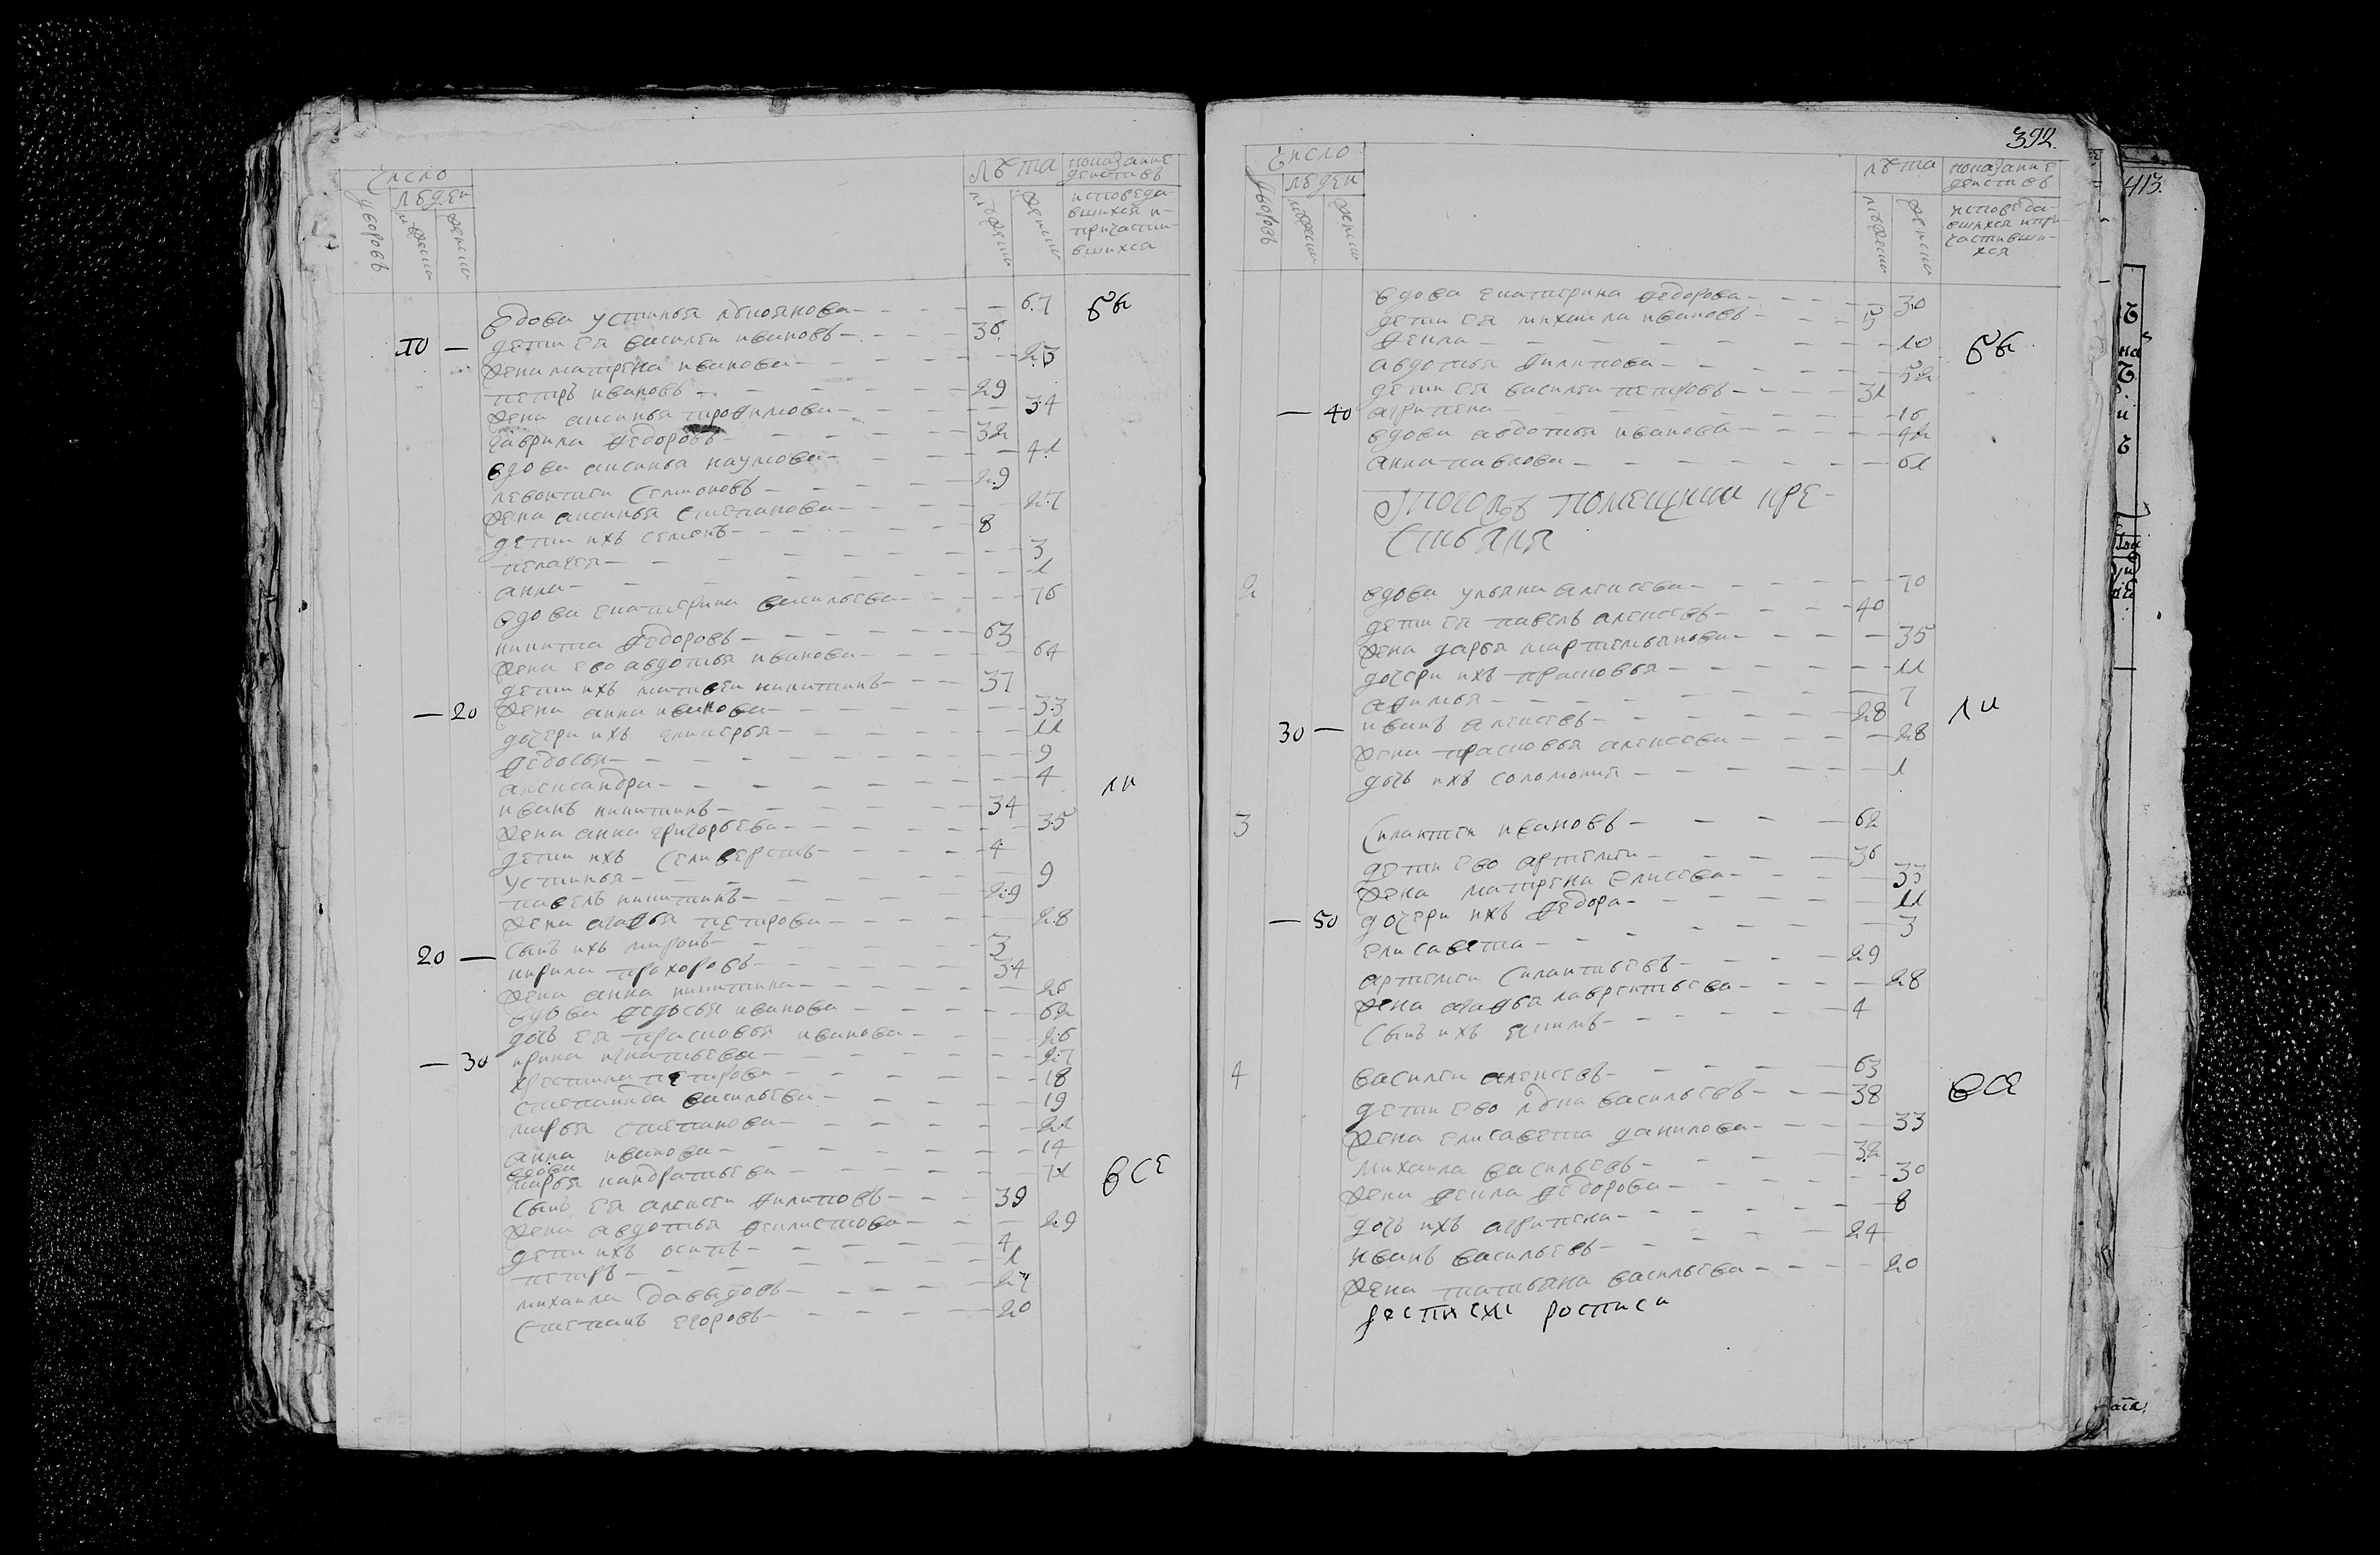 число
людей
дворовъ
мужеска
женска
лѣта
мужеска
женска
показание действъ
исповеда-
вшихся и
причасти-
вшихся
вдова устинья лукоянова 67
10 — дети ея василеи ивановъ 36
жена матрена иванова 25
петръ ивановъ 29
жена аксинья трофимова 34
гаврила федоровъ 32
вдова аксинья наумова 41
левонтеи семионовъ 29
жена аксинья степанова 27
дети ихъ семенъ 8
пелагея 3
анна 1
вдова екатерина васильева 76
никита федоровъ 63
жена ево авдотья иванова 64
дети ихъ матвеи никитинъ 37
— 20 жена анна иванова 33
дочери ихъ гликерья 11
федосья 9
александра 4
иванъ никитинъ 34
жена анна григорьева 35
дети ихъ селиверстъ 4
устинья 9
павелъ никитинъ 29
жена агафья петрова 28
20 — сынъ ихъ миронъ 3
кирила прохоровъ 34
жена анна никитина 26
вдова федосья иванова 62
дочь ея прасковья иванова 26
— 30 ирина игнатьева 27
хрестина петрова 18
степанида васильева 19
марья степанова 21
анна иванова 14
вдова
марья кандратьева 71
сынъ ея алексеи филиповъ 39
жена авдотья феклистова 29
дети ихъ осипъ 4
петръ 1
михаила давыдовъ 27
степанъ егоровъ 20
бы
ли
все
392.
число
людеи
дворовъ
мужеска
женска
лѣта
мужеска
женска
показание
действъ
исповеда-
вшихся и при-
частивши-
хся
вдова екатерина федорова 30
дети ея михаила ивановъ 5
фекла 10
авдотья филипова 52
дети ея василеи петровъ 31
— 40 агрипена 16
вдова авдотья иванова 42
анна павлова 61
Тогожъ помещика кре-
стьяня
2 вдова ульяна алексеева 70
дети ея павелъ алексеевъ 40
жена дарья мартемьянова 35
дочери ихъ прасковья 11
афимья 7
30 — иванъ алексеевъ 28
жена прасковья алексеева 28
дочь ихъ соломония 1
3 силантеи ивановъ 62
дети ево артемеи 36
жена матрена елисеева 33
— 50 дочери ихъ федора 11
елисавета 3
артемеи силантьевъ 29
жена агафья лаврентьева 28
сынъ ихъ якимъ 4
4 василеи алексеевъ 63
дети ево лука васильевъ 38
жена елисавета данилова 33
михаила васильевъ 32
жена фекла федорова 30
дочь ихъ агрипена 8
иванъ васильевъ 24
жена татьяна васильева 20
росписи
бы
ли
все
413.